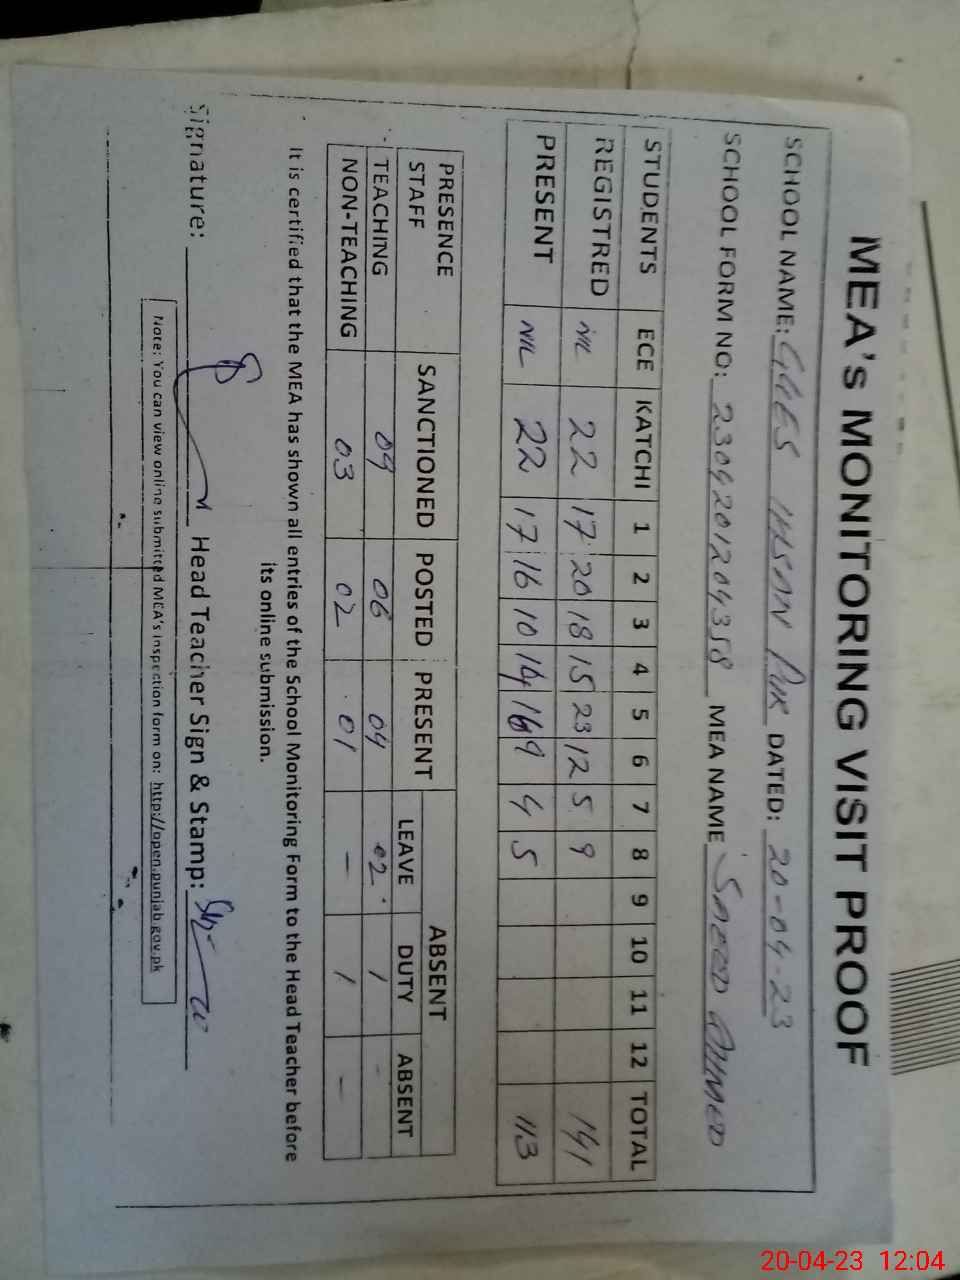 MEA's MONITORING VISIT PROOF
SCHOOL NAME: GGES IHSAN PUR DATED: 20-04-23
SCHOOL FORM NO: 2309201204358 MEA NAME SAEED AHMED
STUDENTS ECE KATCHI 1 2 3 4 5 6 7 8 9 10 11 12 TOTAL
REGISTRED NIL 22 17 20 18 15 23 12 5 9 141
PRESENT NIL 22 17 16 10 14 16 9 4 5 113
PRESENCE STAFF SANCTIONED POSTED PRESENT ABSENT
LEAVE DUTY ABSENT
TEACHING 09 06 04 02 / -
NON-TEACHING 03 02 01 - / -
It is certified that the MEA has shown all entries of the School Monitoring Form to the Head Teacher before
its online submission.
Signature: Head Teacher Sign & Stamp:
Note: You can view online submitted MEA's inspection form on: http://open.punjab.gov.pk
20-04-23 12:04